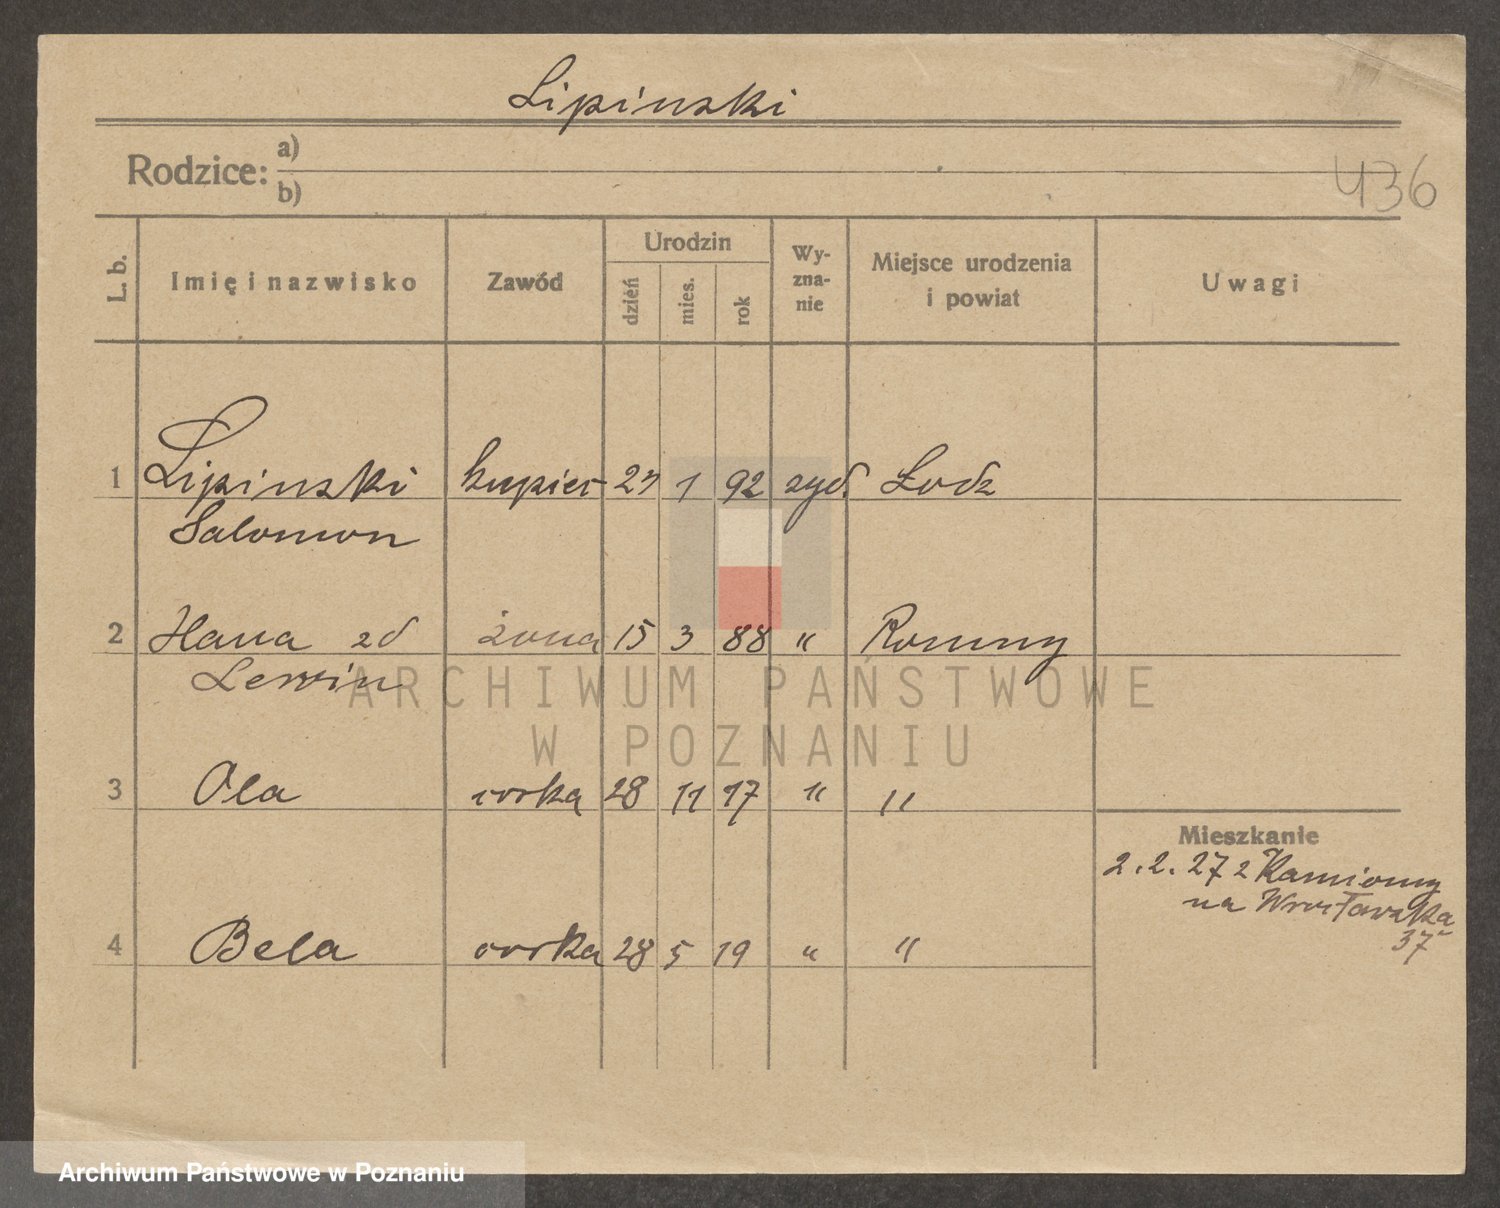 Lipinski
Rodzice: a)
b)
436
L. b. Imię i nazwisko Zawód Urodzin dzień mies. rok Wy-zna-nie Miejsce urodzenia i powiat Uwagi
1 Lipinski kupiec 1 92 żyd. Lodz
Salomon
2 Hana zd żona 15 3 88 " Romny
Lewin
3 Ola corka 28 11 17 " "
Mieszkanie
2.2.27 z Kamionny
na Wrocławska
37
4 Bela corka 28 5 19 " "
ARCHIWUM PAŃSTWOWE
W POZNANIU
Archiwum Państwowe w Poznaniu